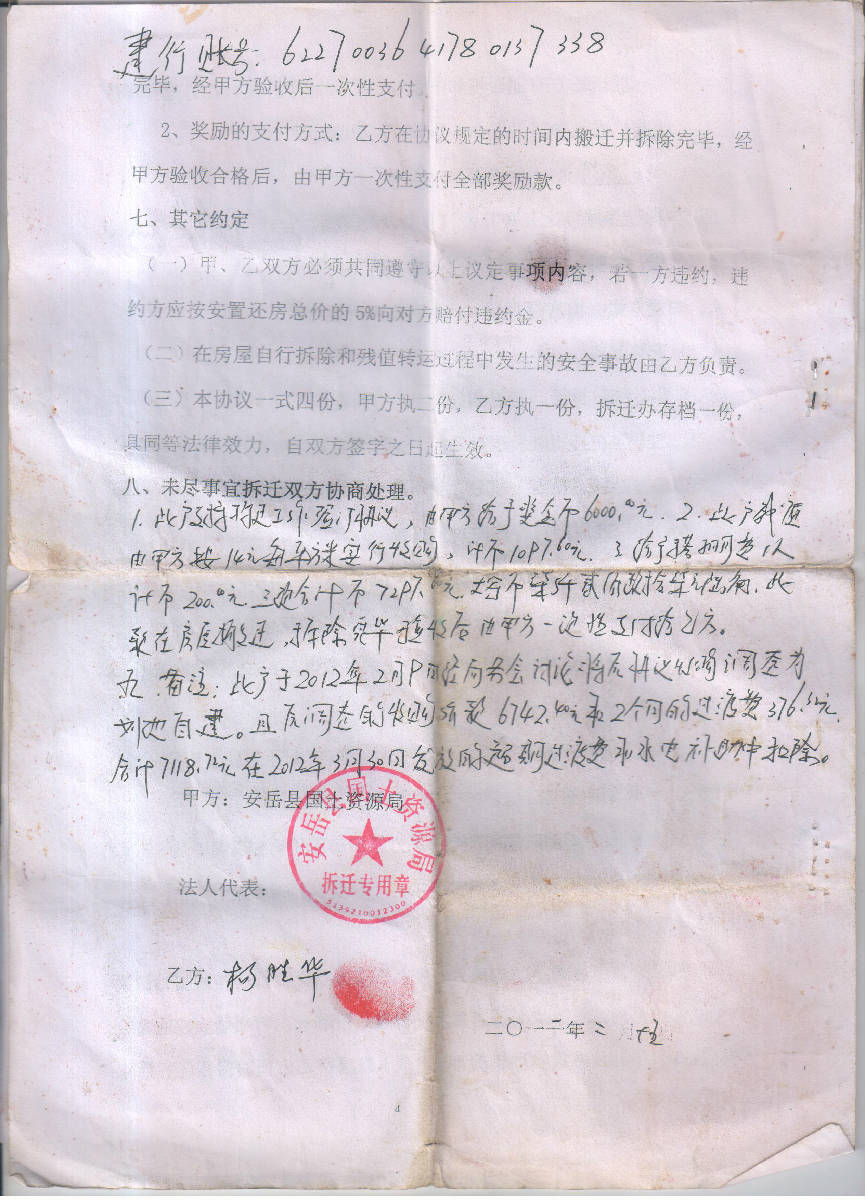 建行账号：6227003641780137338
完毕，经甲方验收后一次性支付。
2、奖励的支付方式：乙方在协议规定的时间内搬迁并拆除完毕，经
甲方验收合格后，由甲方一次性支付全部奖励款。
七、其它约定
（一）甲、乙双方必须共同遵守以上议定事项内容，若一方违约，违
约方应按安置还房总价的5%向对方赔付违约金。
（二）在房屋自行拆除和残值转运过程中发生的安全事故由乙方负责。
（三）本协议一式四份，甲方执二份，乙方执一份，拆迁办存档一份，
具同等法律效力，自双方签字之日起生效。
八、未尽事宜拆迁双方协商处理。
1. 此户支持拆迁工作签订协议，由甲方给予奖金币6000.00元. 2. 此户残值
由甲方按14元每平方米实行收购，计币1097.60元. 3
计币200.00元. 三项合计币7297.60元 此
款在房屋搬迁，拆除完毕验收后由甲方一次性支付给乙方。
备注：此户于2012年2月9日经局务会讨论将原协议 调整为
划地自建。且原 的收购 款6742.40元和2个月的过渡费376.32元，
合计7118.72元在2012年3月30日发放的超期过渡费和水电补助中扣除。
甲方：安岳县国土资源局
安岳县国土资源局
拆迁专用章
法人代表：
乙方：杨胜华
二〇一二年二月十五
4